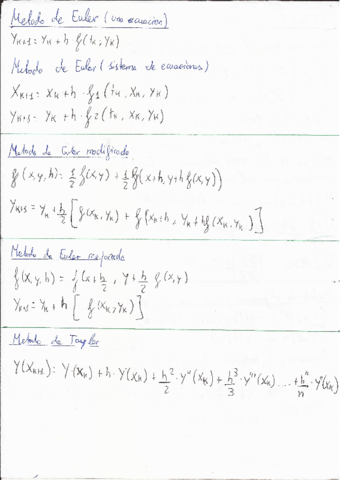 Metodo de Euler (una ecuacion)
Yₖ₊₁ = Yₖ + h f(tₖ, Yₖ)
Metodo de Euler (sistema de ecuaciones)
Xₖ₊₁ = Xₖ + h · f1 (tₖ, Xₖ, Yₖ)
Yₖ₊₁ = Yₖ + h · f2 (tₖ, Xₖ, Yₖ)
Metodo de Euler modificado
f(x,y,h) = 1/2 f(x,y) + 1/2 f(x+h, y+h f(x,y))
Yₖ₊₁ = Yₖ + h/2 [f(Xₖ, Yₖ) + f(Xₖ+h, Yₖ+hf(Xₖ, Yₖ)]
Metodo de Euler mejorado
f(x,y,h) = f(x+h/2, y+h/2 f(x,y)
Yₖ₊₁ = Yₖ + h [f(Xₖ, Yₖ)]
Metodo de Taylor
Y(Xₖ₊₁) = Y(Xₖ) + h · Y(Xₖ) + h²/2 · Y''(Xₖ) + h³/3 · Y'''(Xₖ) .... + hⁿ/n · Yⁿ(Xₖ)